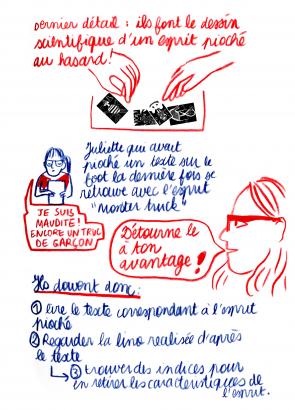 Dernier détail : ils font le dessin
scientifique d'un esprit pioché
au hasard !
Juliette qui avait
pioché un texte sur le
foot la dernière fois se
retrouve avec l'esprit
"monster truck"
JE SUIS
MAUDITE !
ENCORE UN TRUC
DE GARÇON
Détourne le
à ton
avantage !
Ils doivent donc :
① lire le texte correspondant à l'esprit
pioché
② Regarder la lino réalisée d'après
le texte
③ trouver des indices pour
en retirer les caractéristiques de
l'esprit.